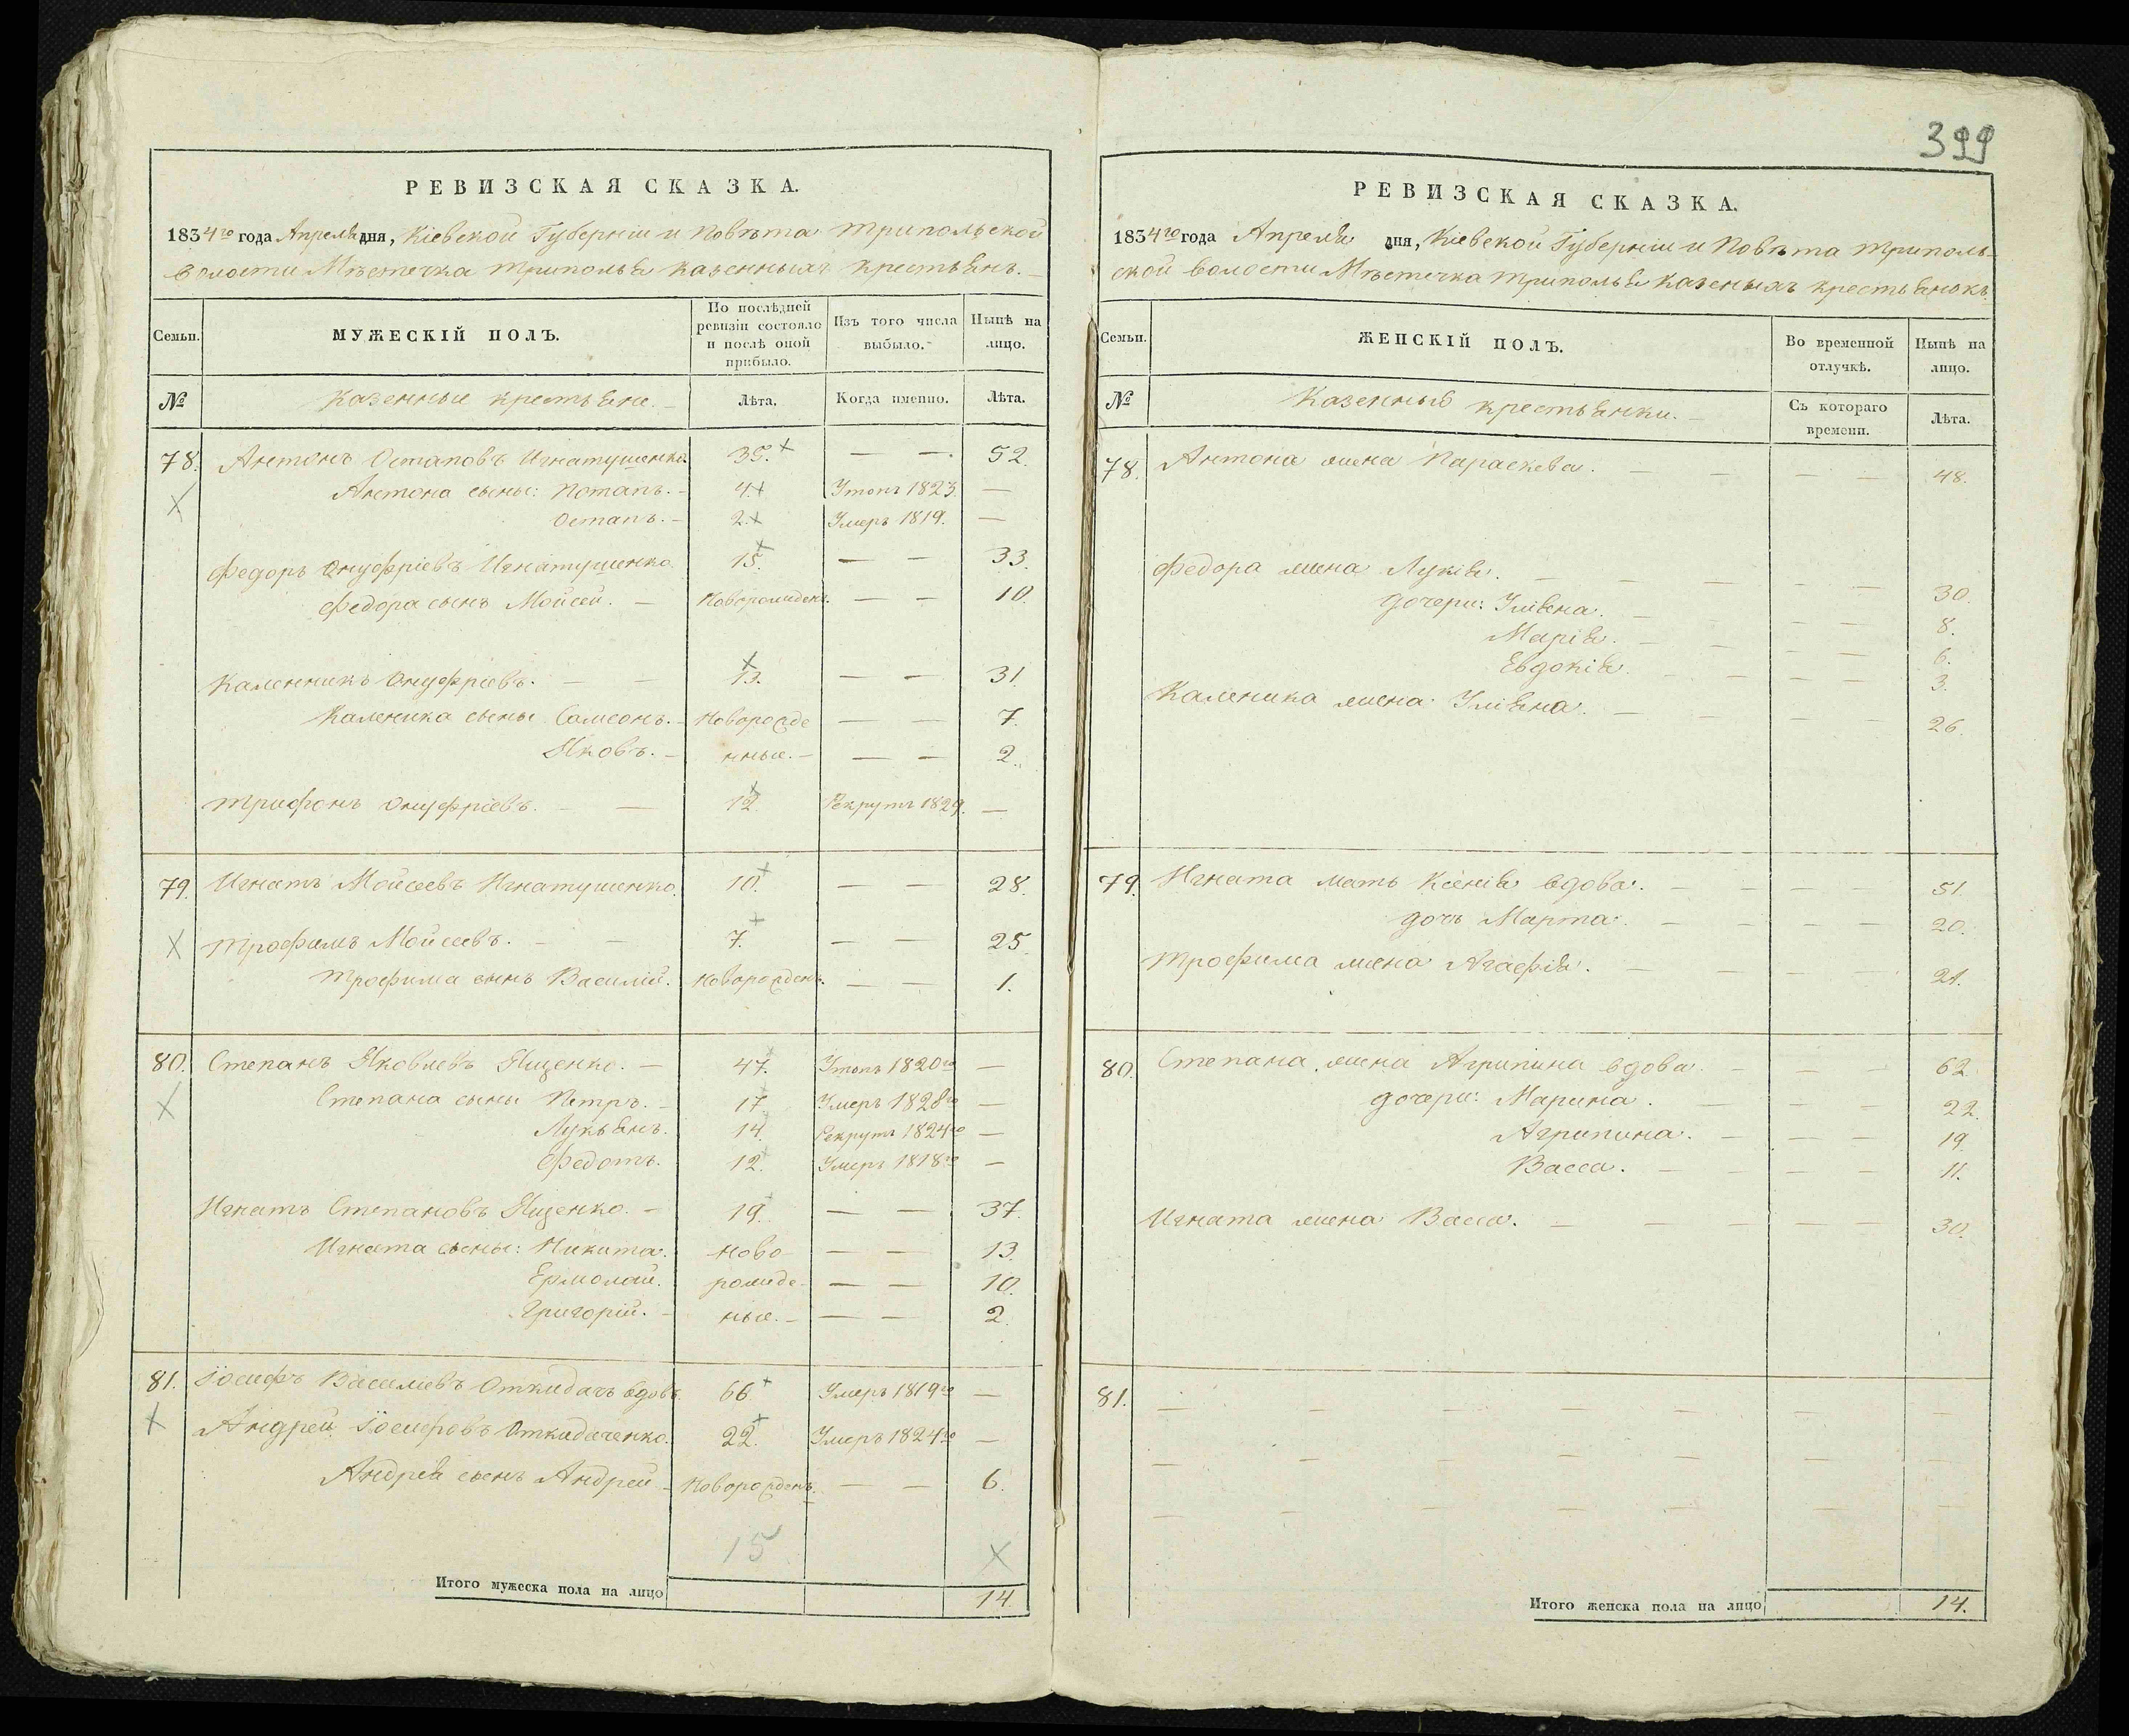 РЕВИЗСКАЯ СКАЗКА.
1834го года Апреля дня, Кіевской Губерніи и Повѣта Трипольской
волости Мѣстечка Триполья казенныхъ крестьянъ.
Семьи.
МУЖЕСКІЙ ПОЛЪ.
По послѣдней ревизіи состояло и послѣ оной прибыло.
Изъ того числа выбыло.
Нынѣ на лицо.
№ Казенные крестьяне. Лѣта. Когда именно. Лѣта.
78. Антонъ Остаповъ Игнатушенко. 35. — — 52.
Антона сыны: Потапъ. 4. Утопъ 1823. —
Остапъ. 2. Умеръ 1819. —
Федоръ Онуфріевъ Игнатушенко 15. — — 33.
Федора сынъ Мойсей. — Новорожденъ. — — 10.
Каленникъ Онуфріевъ. — — 13. — — 31.
Каленика сыны Самсонъ. Новорожде — — 7.
Яковъ. — нные. — — — 2.
Трифонъ Онуфріевъ. — — 12. Рекрутъ 1829. —
79. Игнатъ Мойсеевъ Игнатушенко. 10. — — 28.
Трофимъ Мойсеевъ. — — 7. — — 25.
Трофима сынъ Василій. Новорожденъ. — — 1.
80. Степанъ Яковлевъ Яценко. — 47. Утопъ 1820го —
Степана сыны Петръ. — 17. Умеръ 1828го —
Лукьянъ. 14. Рекрутъ 1824го —
Федотъ. 12. Умеръ 1818го —
Игнатъ Степановъ Яценко. — 19. — — 37.
Игната сыны: Никита. ново — — 13.
Ермолай. рожде — — 10.
Григорій. — ные. — — — 2.
81. Іосифъ Василіевъ Откидачъ вдовъ. 66. Умеръ 1819го —
Андрей Іосифовъ Откидаченко. 22. Умеръ 1824го —
Андрея сынъ Андрей — Новорожденъ. — — 6.
15
Итого мужеска пола на лицо 14.
399
РЕВИЗСКАЯ СКАЗКА.
1834го года Апреля дня, Кіевской Губерніи и Повѣта Триполь-
ской волости Мѣстечка Триполья казеныхъ крестьянокъ
Семьи.
ЖЕНСКІЙ ПОЛЪ.
Во временной отлучкѣ.
Нынѣ на лицо.
№ Казенныя крестьянки. — Съ котораго времени. Лѣта.
78. Антона жена Параскева. — — — — 48.
Федора жена Лукія. — — — — — 30.
Дочери: Уліяна. — — — — 8.
Марія. — — — — 6.
Евдокія. — — — — 3.
Каленика жена Уліяна. — — — — 26.
79. Игната мать Ксенія вдова. — — — — 51.
дочь Марта. — — — — 20.
Трофима жена Агафія. — — — — 21.
80. Степана жена Агрипина вдова. — — — 62.
дочери: Марина. — — — 22.
Агрипина. — — — 19.
Васса. — — — — 11.
Игната жена Васса. — — — — 30.
81. — — — — — — —
— — — — — — —
— — — — — — —
Итого женска пола на лицо 14.